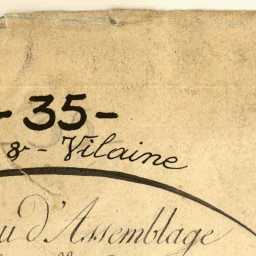 - 35 -
& - Vilaine
u d'Assemblage